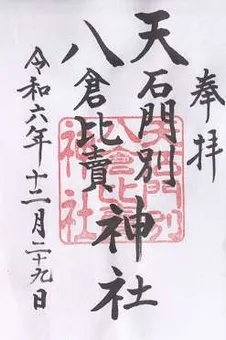 奉拝
天石門別
八倉比賣神社
令和六年十二月二十九日
天石門別
八倉比賣
神社